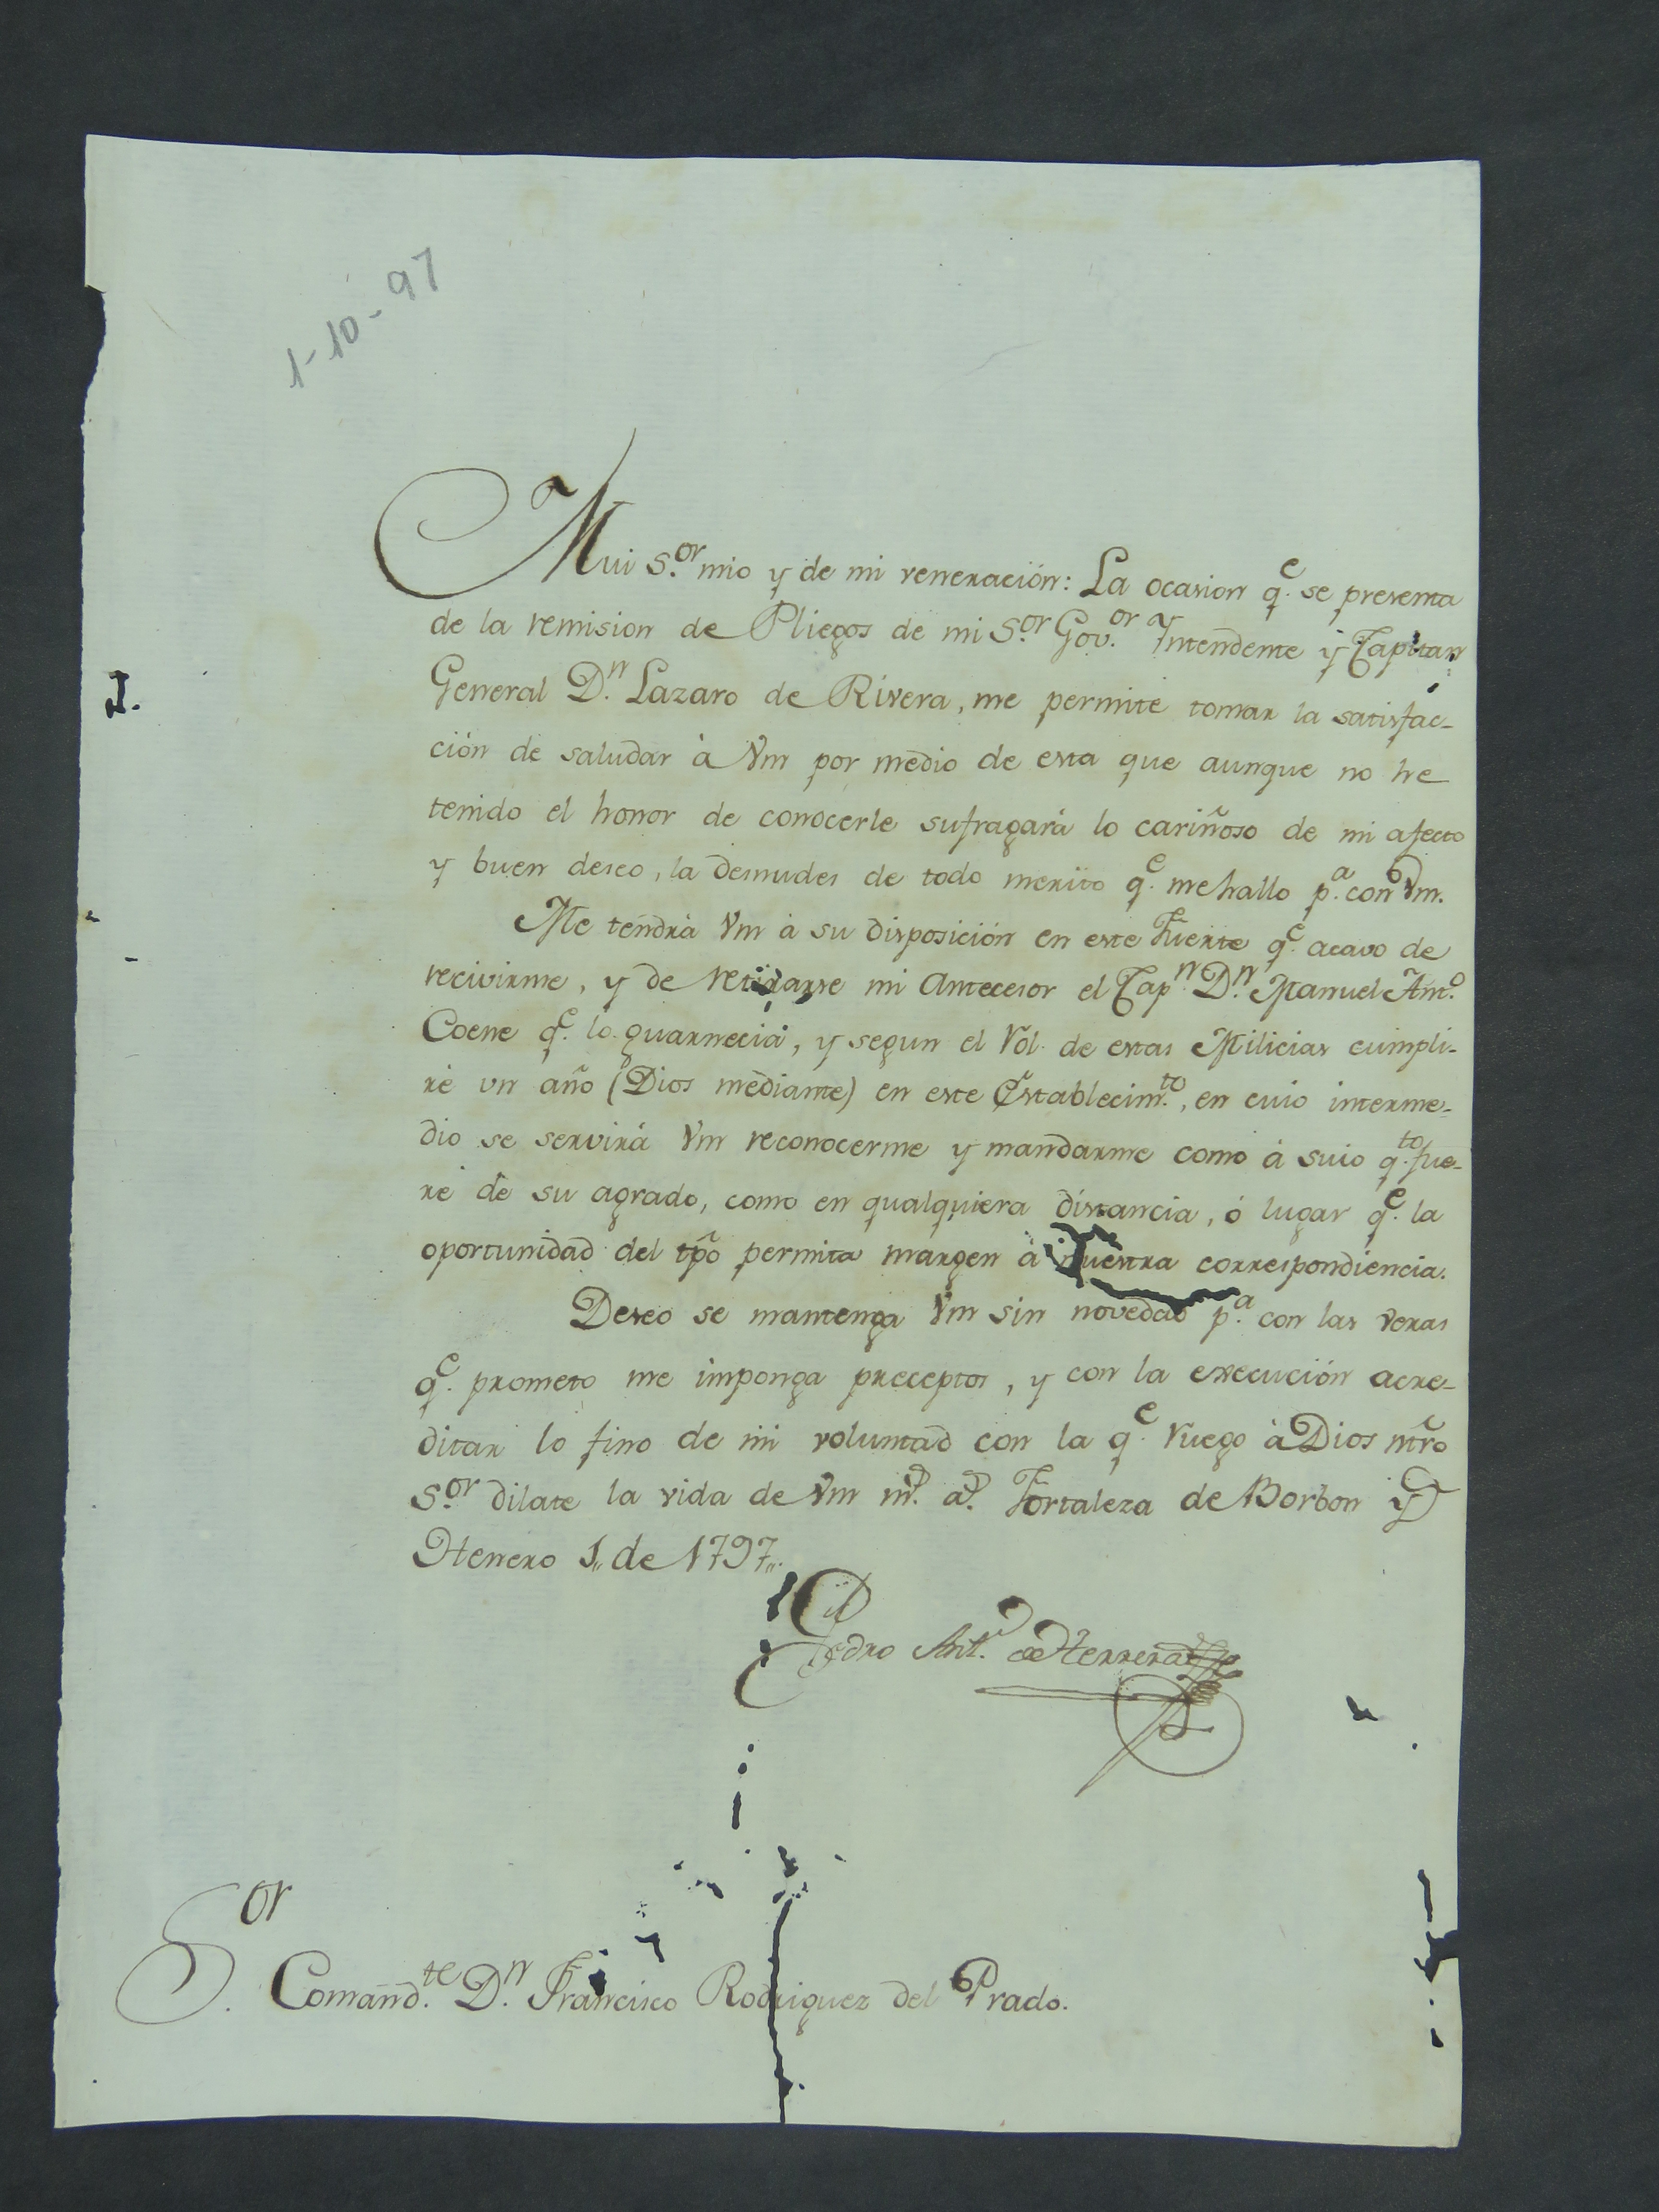 1-10-97
Mui S.or mio y de mi veneración: La ocasion q.e se presenta
de la remision de Pliegos de mi S.or Gov.or Yntendente y Capitan
General D.n Lazaro de Rivera, me permite tomar la satisfac-
ción de saludar à Vm por medio de esta que aunque no he
tenido el honor de conocerle sufragarà lo cariñoso de mi afecto
y buen deseo, la desnudes de todo merito q.e me hallo p.a con Vm.
Me tendrà Vm à su disposición en este Fuerte q.e acavo de
recivirme, y de retirarse mi Antecesor el Cap.n D.n Manuel Ant.o
Coene q.e lo guarnecia, y segun el Rol de estas Milicias cumpli-
rè un año (Dios mediante) en este Establecim.to, en cuio interme-
dio se servirà Vm reconocerme y mandarme como à suio q.to fue-
re de su agrado, como en qualquiera distancia, ò lugar q.e la
oportunidad del tpõ permita margen à nuestra correspondiencia.
Deseo se mantenga Vm sin novedad p.a con las veras
q.e prometo me imponga preceptos, y con la execución acre-
ditar lo fino de mi voluntad con la q.e ruego à Dios ntrõ
S.or dilate la vida de Vm m.s a.s Fortaleza de Borbon y
Henero 1,, de 1797,,.
Pedro Ant.o de Herrera
S.or Comand.te D.n Francisco Rodriguez del Prado.